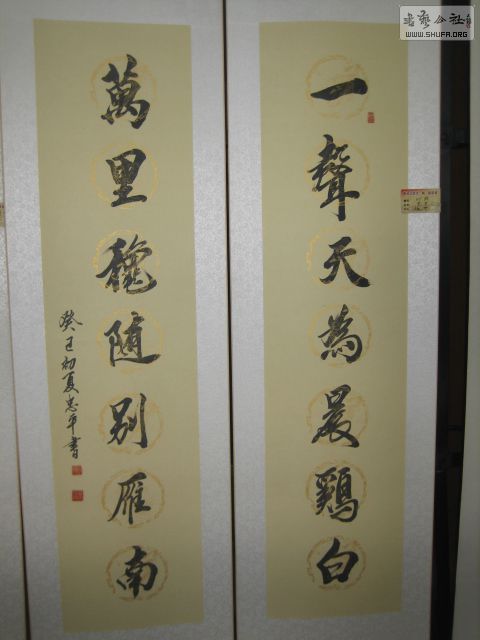 書藝公社
WWW.SHUFA.ORG
一聲天為晨鷄白
萬里穐随别雁南
癸巳初夏忠平書